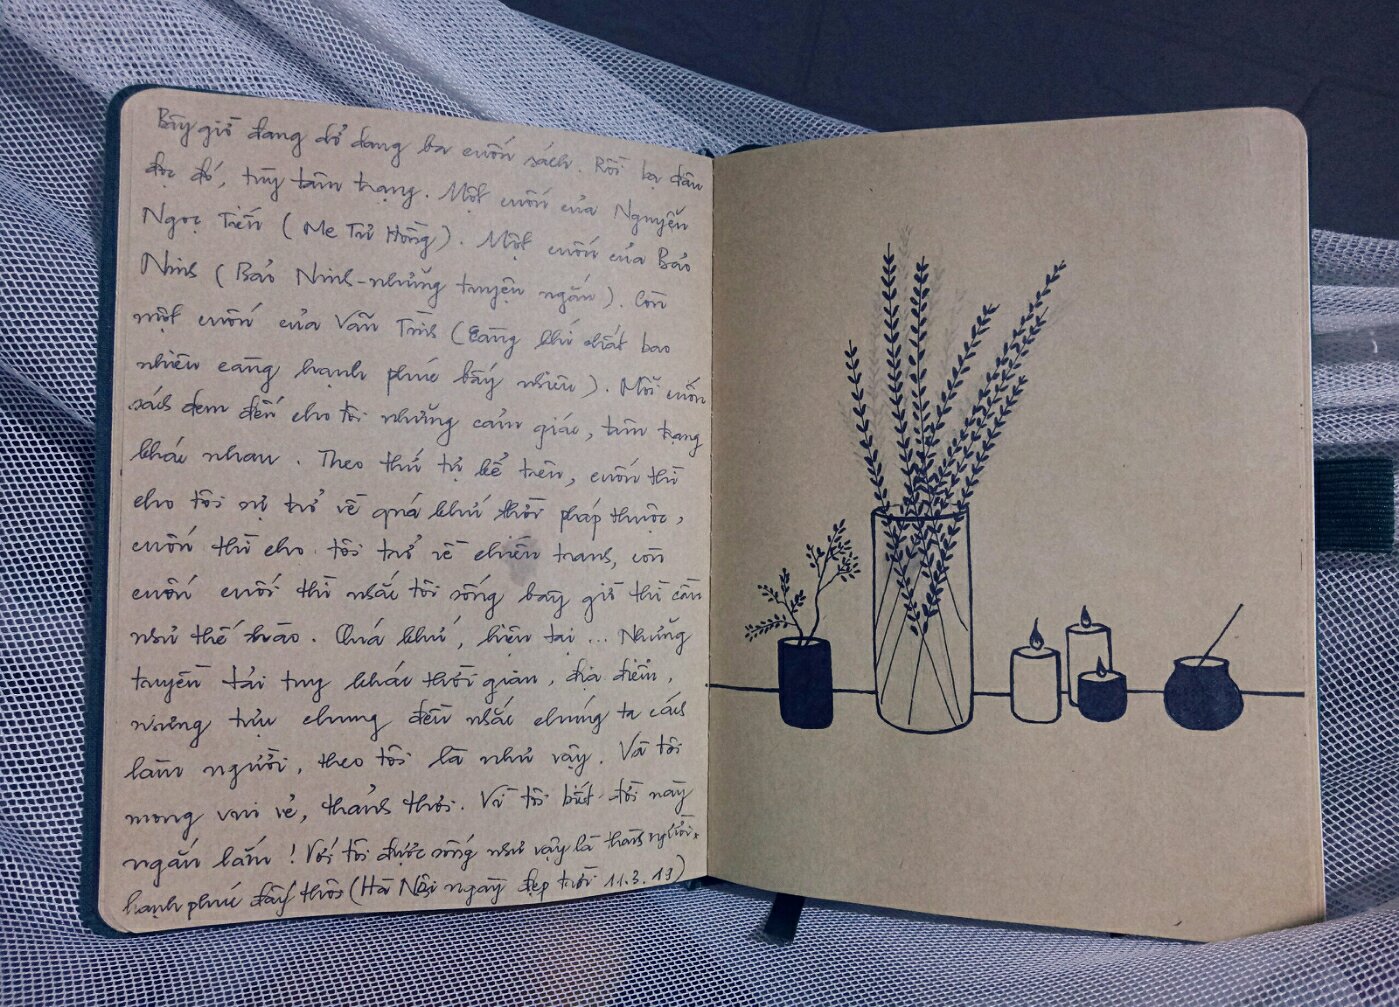 Bây giờ đang dở dang ba cuốn sách. Rồi bạ đâu
đọc đó, tùy tâm trạng. Một cuốn của Nguyễn
Ngọc Tiến (Me Tư Hồng). Một cuốn của Bảo
Ninh (Bảo Ninh-những truyện ngắn). Còn
một cuốn của Vãn Tình (Càng khí chất bao
nhiêu càng hạnh phúc bấy nhiêu). Mỗi cuốn
sách đem đến cho tôi những cảm giác, tâm trạng
khác nhau. Theo thứ tự kể trên, cuốn thì
cho tôi sự trở về quá khứ thời pháp thuộc,
cuốn thì cho tôi trở về chiến tranh, còn
cuốn cuối thì nhắc tôi sống bây giờ thì cần
như thế nào. Quá khứ, hiện tại ... Nhưng
truyền tải tuy khác thời gian, địa điểm,
nhưng tựu chung đều nhắc chúng ta cách
làm người, theo tôi là như vậy. Và tôi
mong vui vẻ, thảnh thơi. Vì tôi biết đời này
ngắn lắm! Với tôi được sống như vậy là thành người
hạnh phúc đấy thôi (Hà Nội ngày đẹp trời 11.3.19)